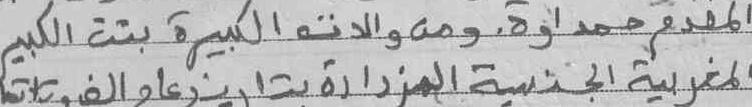 المقدم حمداوة. ومن والدته الكبيرة بنت الكبير
المغربية الجنسية المزدادة بتاريخ عام ألف و